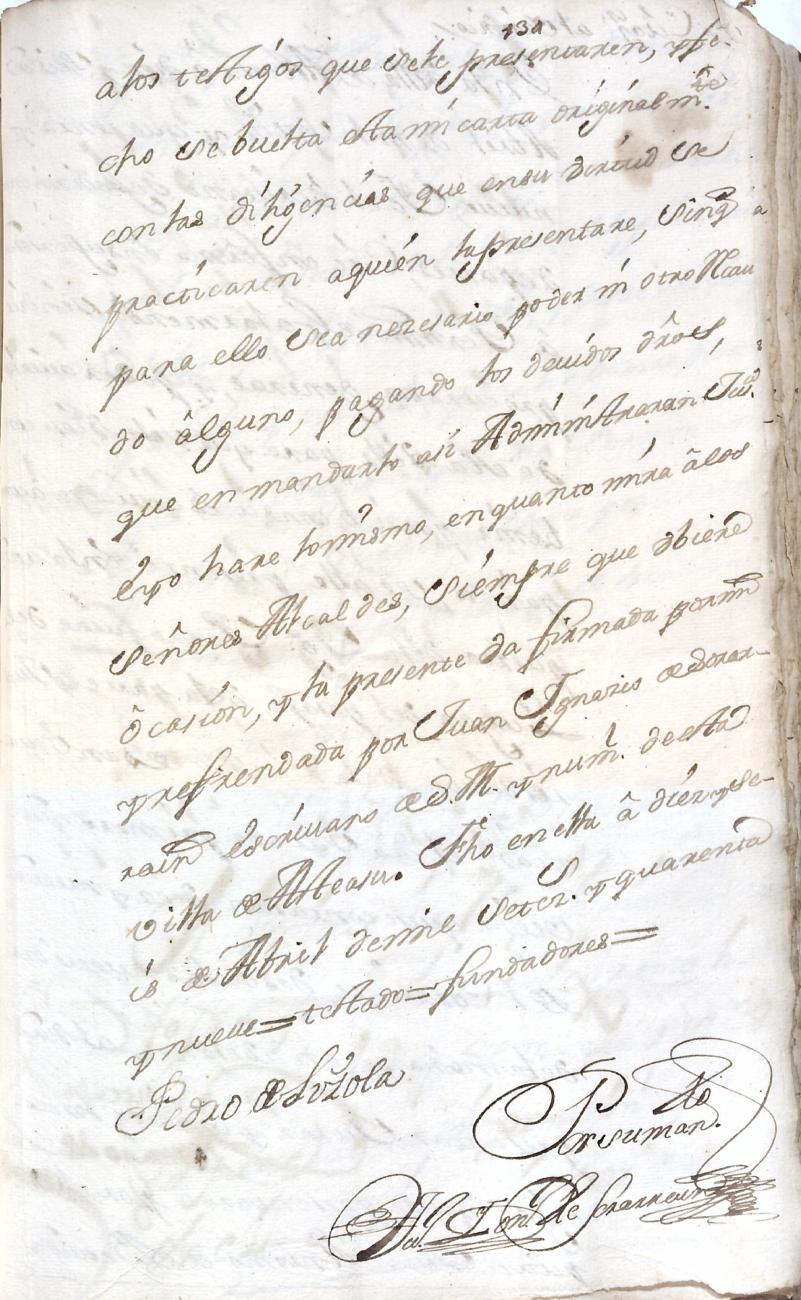 134
a los testigos que sele presentaren, y fe-
cho se buelta esta mi carta originalm.te
con las dilig̃encias que en su virtud se
practicaren a quien la presentare, sinq̃
para ello sea nezesario poder ni otro Recau
do âlguno, pagando los deuidos dr̃os,
que en mandarlo asi Administraran Jus.
è yo hare lo mismo, en quanto mira â los
señores Alcaldes, siempre que obiere
ôcasion, y la presente da firmada por mi
y refrendada por Juan Ignazio de sorar-
rain escriuano de S. M. y num. de esta
villa de Alteasu. Fho en ella â diez y se-
is de Abril de mil setez.s y quarenta
y nueue = testado = fundadores =
Pedro de Luzola
Por su man.do
Ju. Ign. de sorarrain